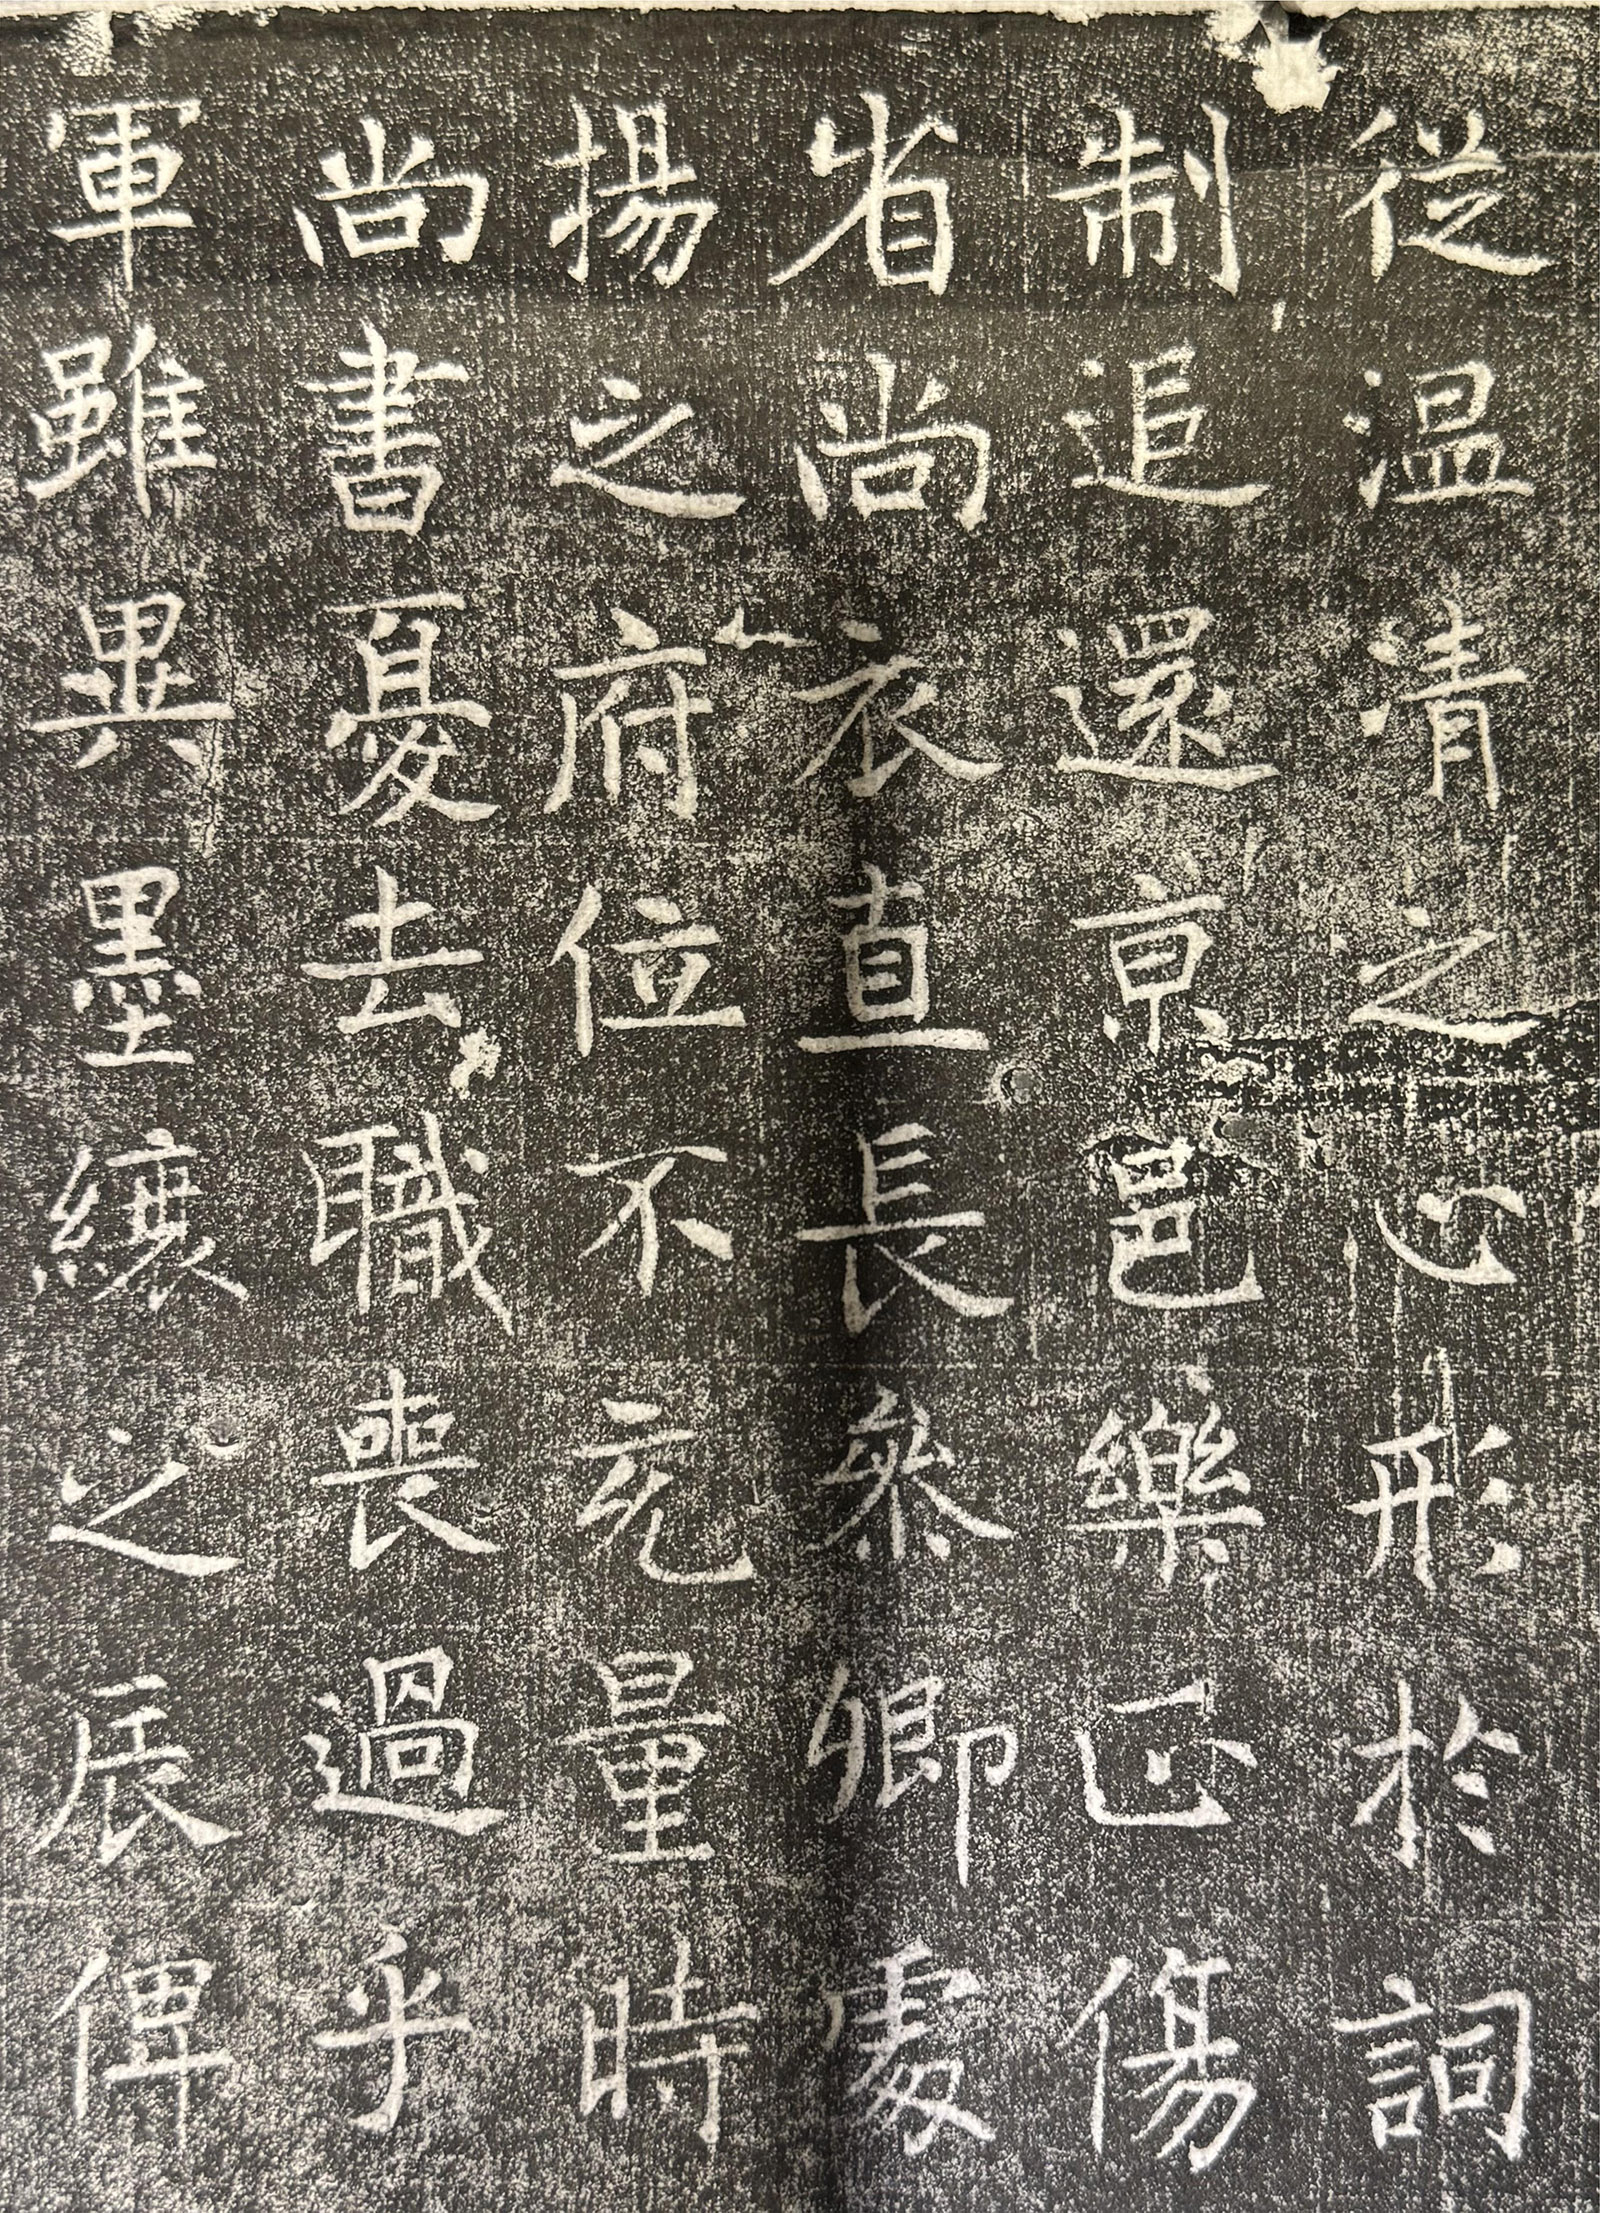 從温凊之心形於詞
制追還京邑樂正傷
省尚衣直長參卿處
揚之府位不充量時
尚書憂去職喪過乎
軍雖異墨縗之辰俾